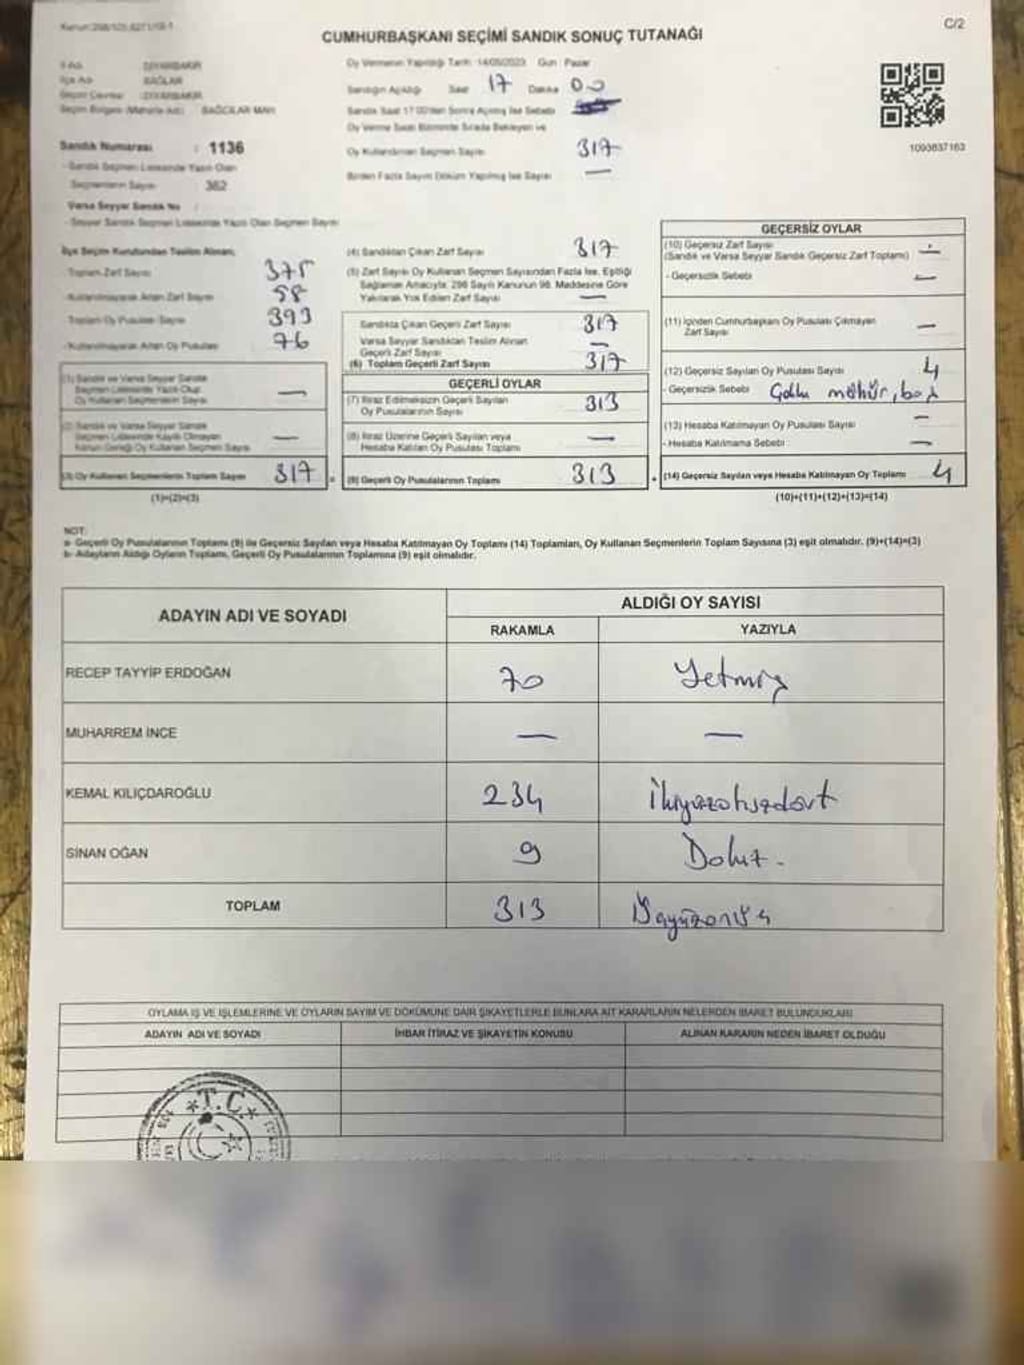 C/2
CUMHURBAŞKANI SEÇİMİ SANDIK SONUÇ TUTANAĞI
İli Adı DİYARBAKIR
İlçe Adı BAĞLAR
Seçim Çevresi : DİYARBAKIR
Seçim Bölgesi (Mahalle Adı) : BAĞCILAR MAH.
Sandık Numarası : 1136
- Sandık Seçmen Listesinde Yazılı Olan
Seçmenlerin Sayısı : 362
Varsa Seyyar Sandık No :
- Seyyar Sandık Seçmen Listesinde Yazılı Olan Seçmen Sayısı
Oy Vermenin Yapıldığı Tarih: 14/05/2023 Gün : Pazar
Sandığın Açıldığı Saat 17 Dakika 00
Sandık Saat 17:00'den Sonra Açılmış İse Sebebi
Oy Verme Saati Bitiminde Sırada Bekleyen ve
Oy Kullandırılan Seçmen Sayısı 317
Birden Fazla Sayım Döküm Yapılmış İse Sayısı —
1093837163
İlçe Seçim Kurulundan Teslim Alınan;
Toplam Zarf Sayısı 375
- Kullanılmayarak Artan Zarf Sayısı 58
Toplam Oy Pusulası Sayısı 393
- Kullanılmayarak Artan Oy Pusulası 76
(1) Sandık ve Varsa Seyyar Sandık
Seçmen Listesinde Yazılı Olup
Oy Kullanan Seçmenlerin Sayısı —
(2) Sandık ve Varsa Seyyar Sandık
Seçmen Listesinde Kayıtlı Olmayan
Kanun Gereği Oy Kullanan Seçmen Sayısı —
(3) Oy Kullanan Seçmenlerin Toplam Sayısı 317
(1)+(2)=(3)
(4) Sandıktan Çıkan Zarf Sayısı 317
(5) Zarf Sayısı Oy Kullanan Seçmen Sayısından Fazla İse, Eşitliği
Sağlamak Amacıyla; 298 Sayılı Kanunun 98. Maddesine Göre
Yakılarak Yok Edilen Zarf Sayısı —
Sandıkta Çıkan Geçerli Zarf Sayısı 317
Varsa Seyyar Sandıktan Teslim Alınan
Geçerli Zarf Sayısı —
(6) Toplam Geçerli Zarf Sayısı 317
GEÇERLİ OYLAR
(7) İtiraz Edilmeksizin Geçerli Sayılan
Oy Pusulalarının Sayısı 313
(8) İtiraz Üzerine Geçerli Sayılan veya
Hesaba Katılan Oy Pusulası Toplamı —
(9) Geçerli Oy Pusulalarının Toplamı 313
GEÇERSİZ OYLAR
(10) Geçersiz Zarf Sayısı
(Sandık ve Varsa Seyyar Sandık Geçersiz Zarf Toplamı) —
- Geçersizlik Sebebi —
(11) İçinden Cumhurbaşkanı Oy Pusulası Çıkmayan
Zarf Sayısı —
(12) Geçersiz Sayılan Oy Pusulası Sayısı 4
- Geçersizlik Sebebi mühür, boş
(13) Hesaba Katılmayan Oy Pusulası Sayısı —
- Hesaba Katılmama Sebebi —
(14) Geçersiz Sayılan veya Hesaba Katılmayan Oy Toplamı 4
(10)+(11)+(12)+(13)=(14)
NOT:
a- Geçerli Oy Pusulalarının Toplamı (9) ile Geçersiz Sayılan veya Hesaba Katılmayan Oy Toplamı (14) Toplamları, Oy Kullanan Seçmenlerin Toplam Sayısına (3) eşit olmalıdır. (9)+(14)=(3)
b- Adayların Aldığı Oyların Toplamı, Geçerli Oy Pusulalarının Toplamına (9) eşit olmalıdır.
ADAYIN ADI VE SOYADI ALDIĞI OY SAYISI
RAKAMLA YAZIYLA
RECEP TAYYİP ERDOĞAN 70 Yetmiş
MUHARREM İNCE — —
KEMAL KILIÇDAROĞLU 234 İkiyüzotuzdört
SİNAN OĞAN 9 Dokuz.
TOPLAM 313
OYLAMA İŞ VE İŞLEMLERİNE VE OYLARIN SAYIM VE DÖKÜMÜNE DAİR ŞİKAYETLERLE BUNLARA AİT KARARLARIN NELERDEN İBARET BULUNDUKLARI
ADAYIN ADI VE SOYADI İHBAR İTİRAZ VE ŞİKAYETİN KONUSU ALINAN KARARIN NEDEN İBARET OLDUĞU
T.C.